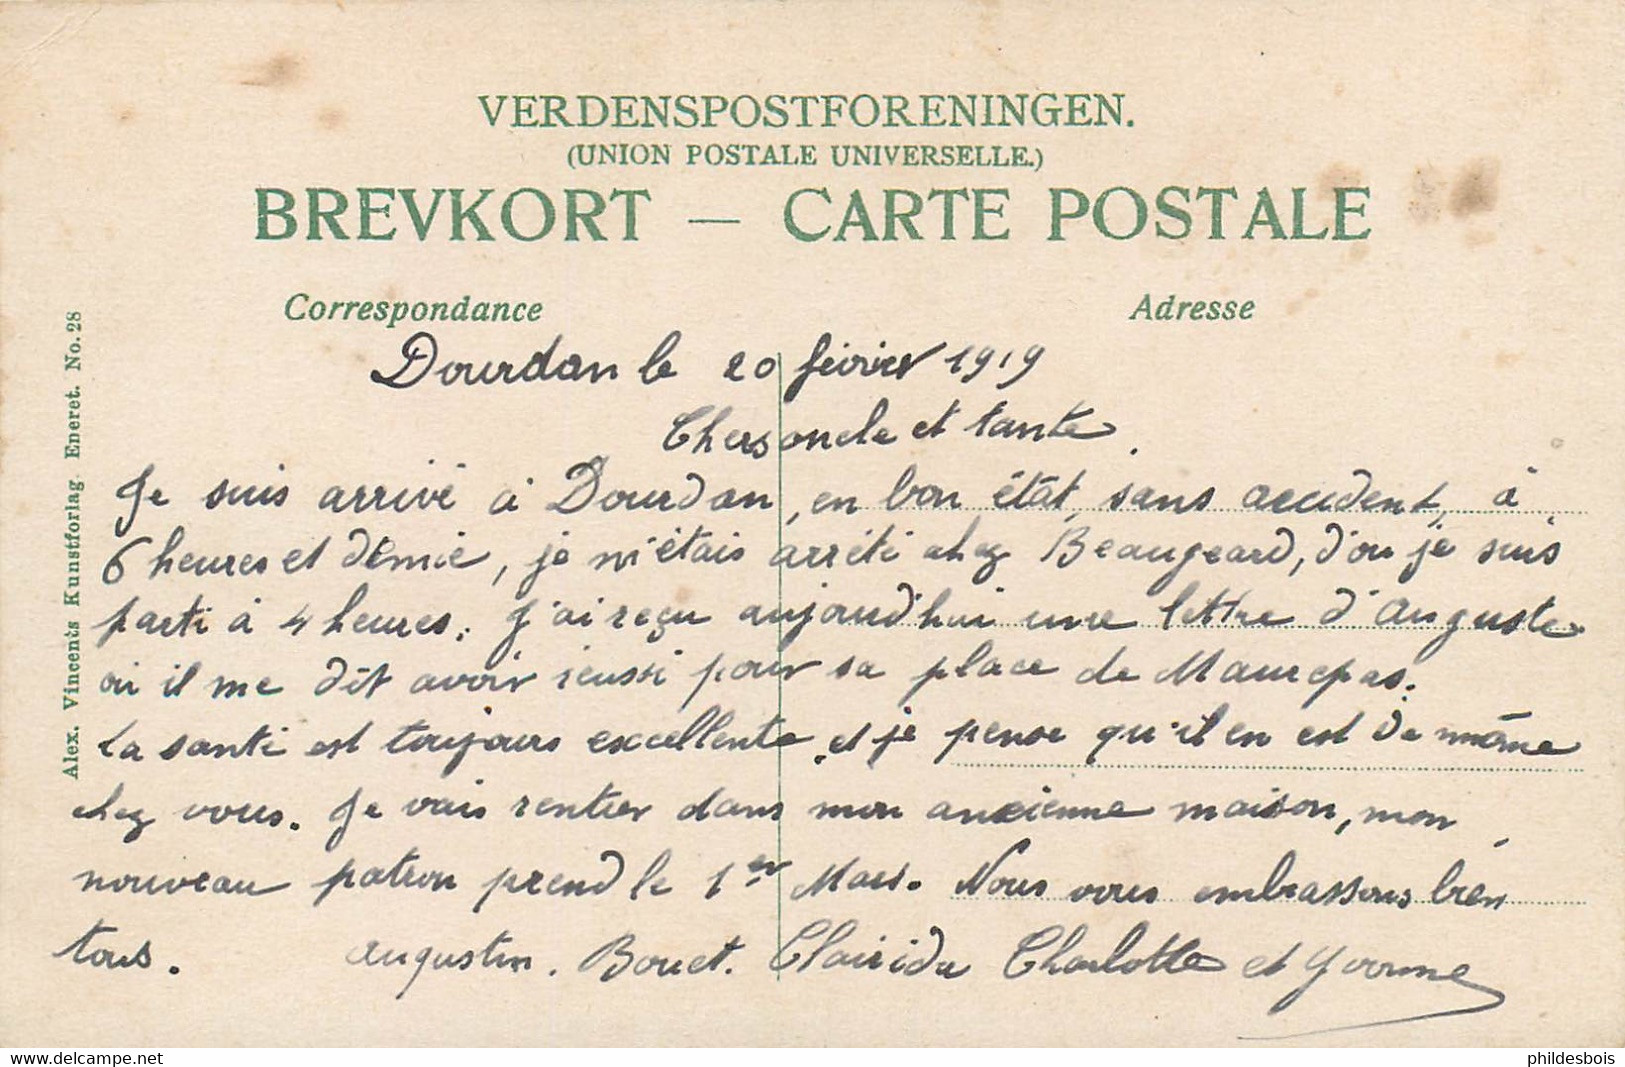 VERDENSPOSTFORENINGEN.
(UNION POSTALE UNIVERSELLE.)
BREVKORT — CARTE POSTALE
Correspondance
Adresse
Alex. Vincents Kunstforlag. Eneret. No. 28
Dourdan le 20 février 1919
Chers oncle et tante.
Je suis arrivé à Dourdan, en bon état, sans accident, à
6 heures et demie, je m'étais arrêté chez Beaugeard, d'ou je suis
parti à 4 heures. J'ai reçu aujourd'hui une lettre d'Auguste
où il me dit avoir reussi pour sa place de Maurepas.
La santé est toujours excellente et je pense qu'il en est de même
chez vous. Je vais rentrer dans mon ancienne maison, mon
nouveau patron prend le 1er Mars. Nous vous embrassons bien
tous. Augustin. Bouet. Charlotte et Yvonne
delcampe.net
phildesbois